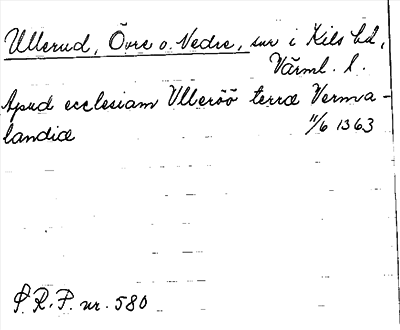 Ullerud, Övre o. Nedre, snr i Kils hd,
Värml. l.
Apud ecclesiam Ulleröö terræ Verma-
landiæ 11/6 1363
S.R.P. nr. 580